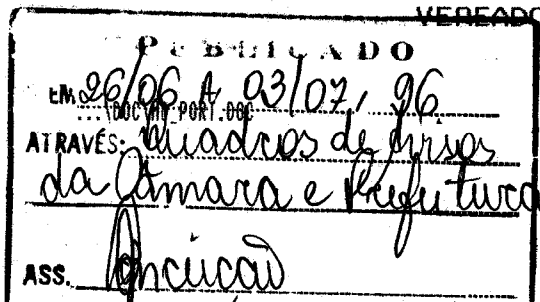 VEREADO
PUBLICADO
EM 26/06 A 03/07, 96
...\DOC\MD_PORT.DOC
ATRAVÉS: Quadros de Avisos
da Câmara e Prefeitura
ASS.